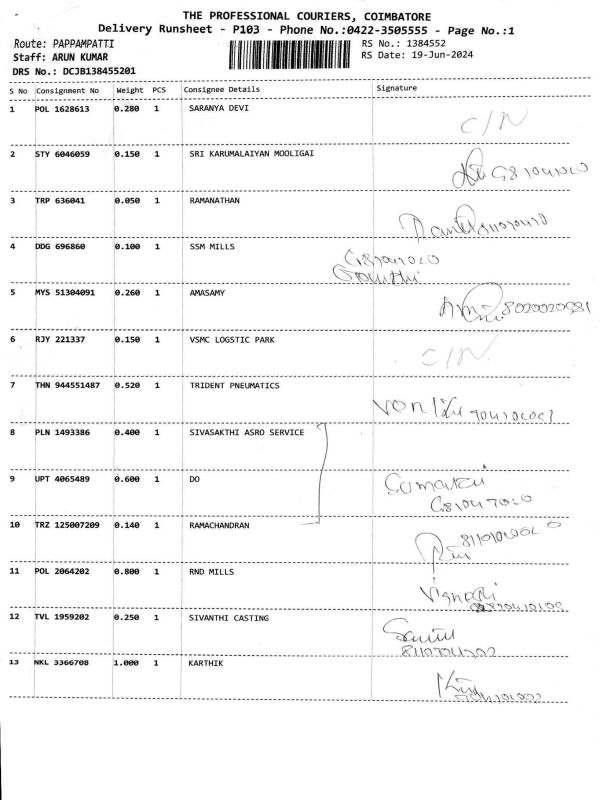 THE PROFESSIONAL COURIERS, COIMBATORE
Delivery Runsheet - P103 - Phone No.:0422-3505555 - Page No.:1
Route: PAPPAMPATTI
RS No.: 1384552
Staff: ARUN KUMAR
RS Date: 19-Jun-2024
DRS No.: DCJB138455201
S No Consignment No Weight PCS Consignee Details Signature
1 POL 1628613 0.280 1 SARANYA DEVI C/N
2 STY 6046059 0.150 1 SRI KARUMALAIYAN MOOLIGAI
3 TRP 636041 0.050 1 RAMANATHAN
4 DDG 696860 0.100 1 SSM MILLS
Gowthi
5 MYS 51304091 0.260 1 AMASAMY
6 RJY 221337 0.150 1 VSMC LOGSTIC PARK C/N
7 THN 944551487 0.520 1 TRIDENT PNEUMATICS
8 PLN 1493386 0.400 1 SIVASAKTHI ASRO SERVICE
9 UPT 4065489 0.600 1 DO
10 TRZ 125007209 0.140 1 RAMACHANDRAN
11 POL 2064202 0.800 1 RND MILLS
12 TVL 1959202 0.250 1 SIVANTHI CASTING
13 NKL 3366708 1.000 1 KARTHIK